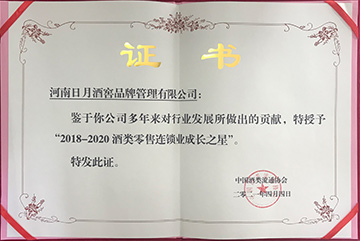 证书
河南日月酒窖品牌管理有限公司：
鉴于你公司多年来对行业发展所做出的贡献，特授予
“2018-2020 酒类零售连锁业成长之星”。
特发此证。
中国酒类流通协会
二〇二一年四月四日